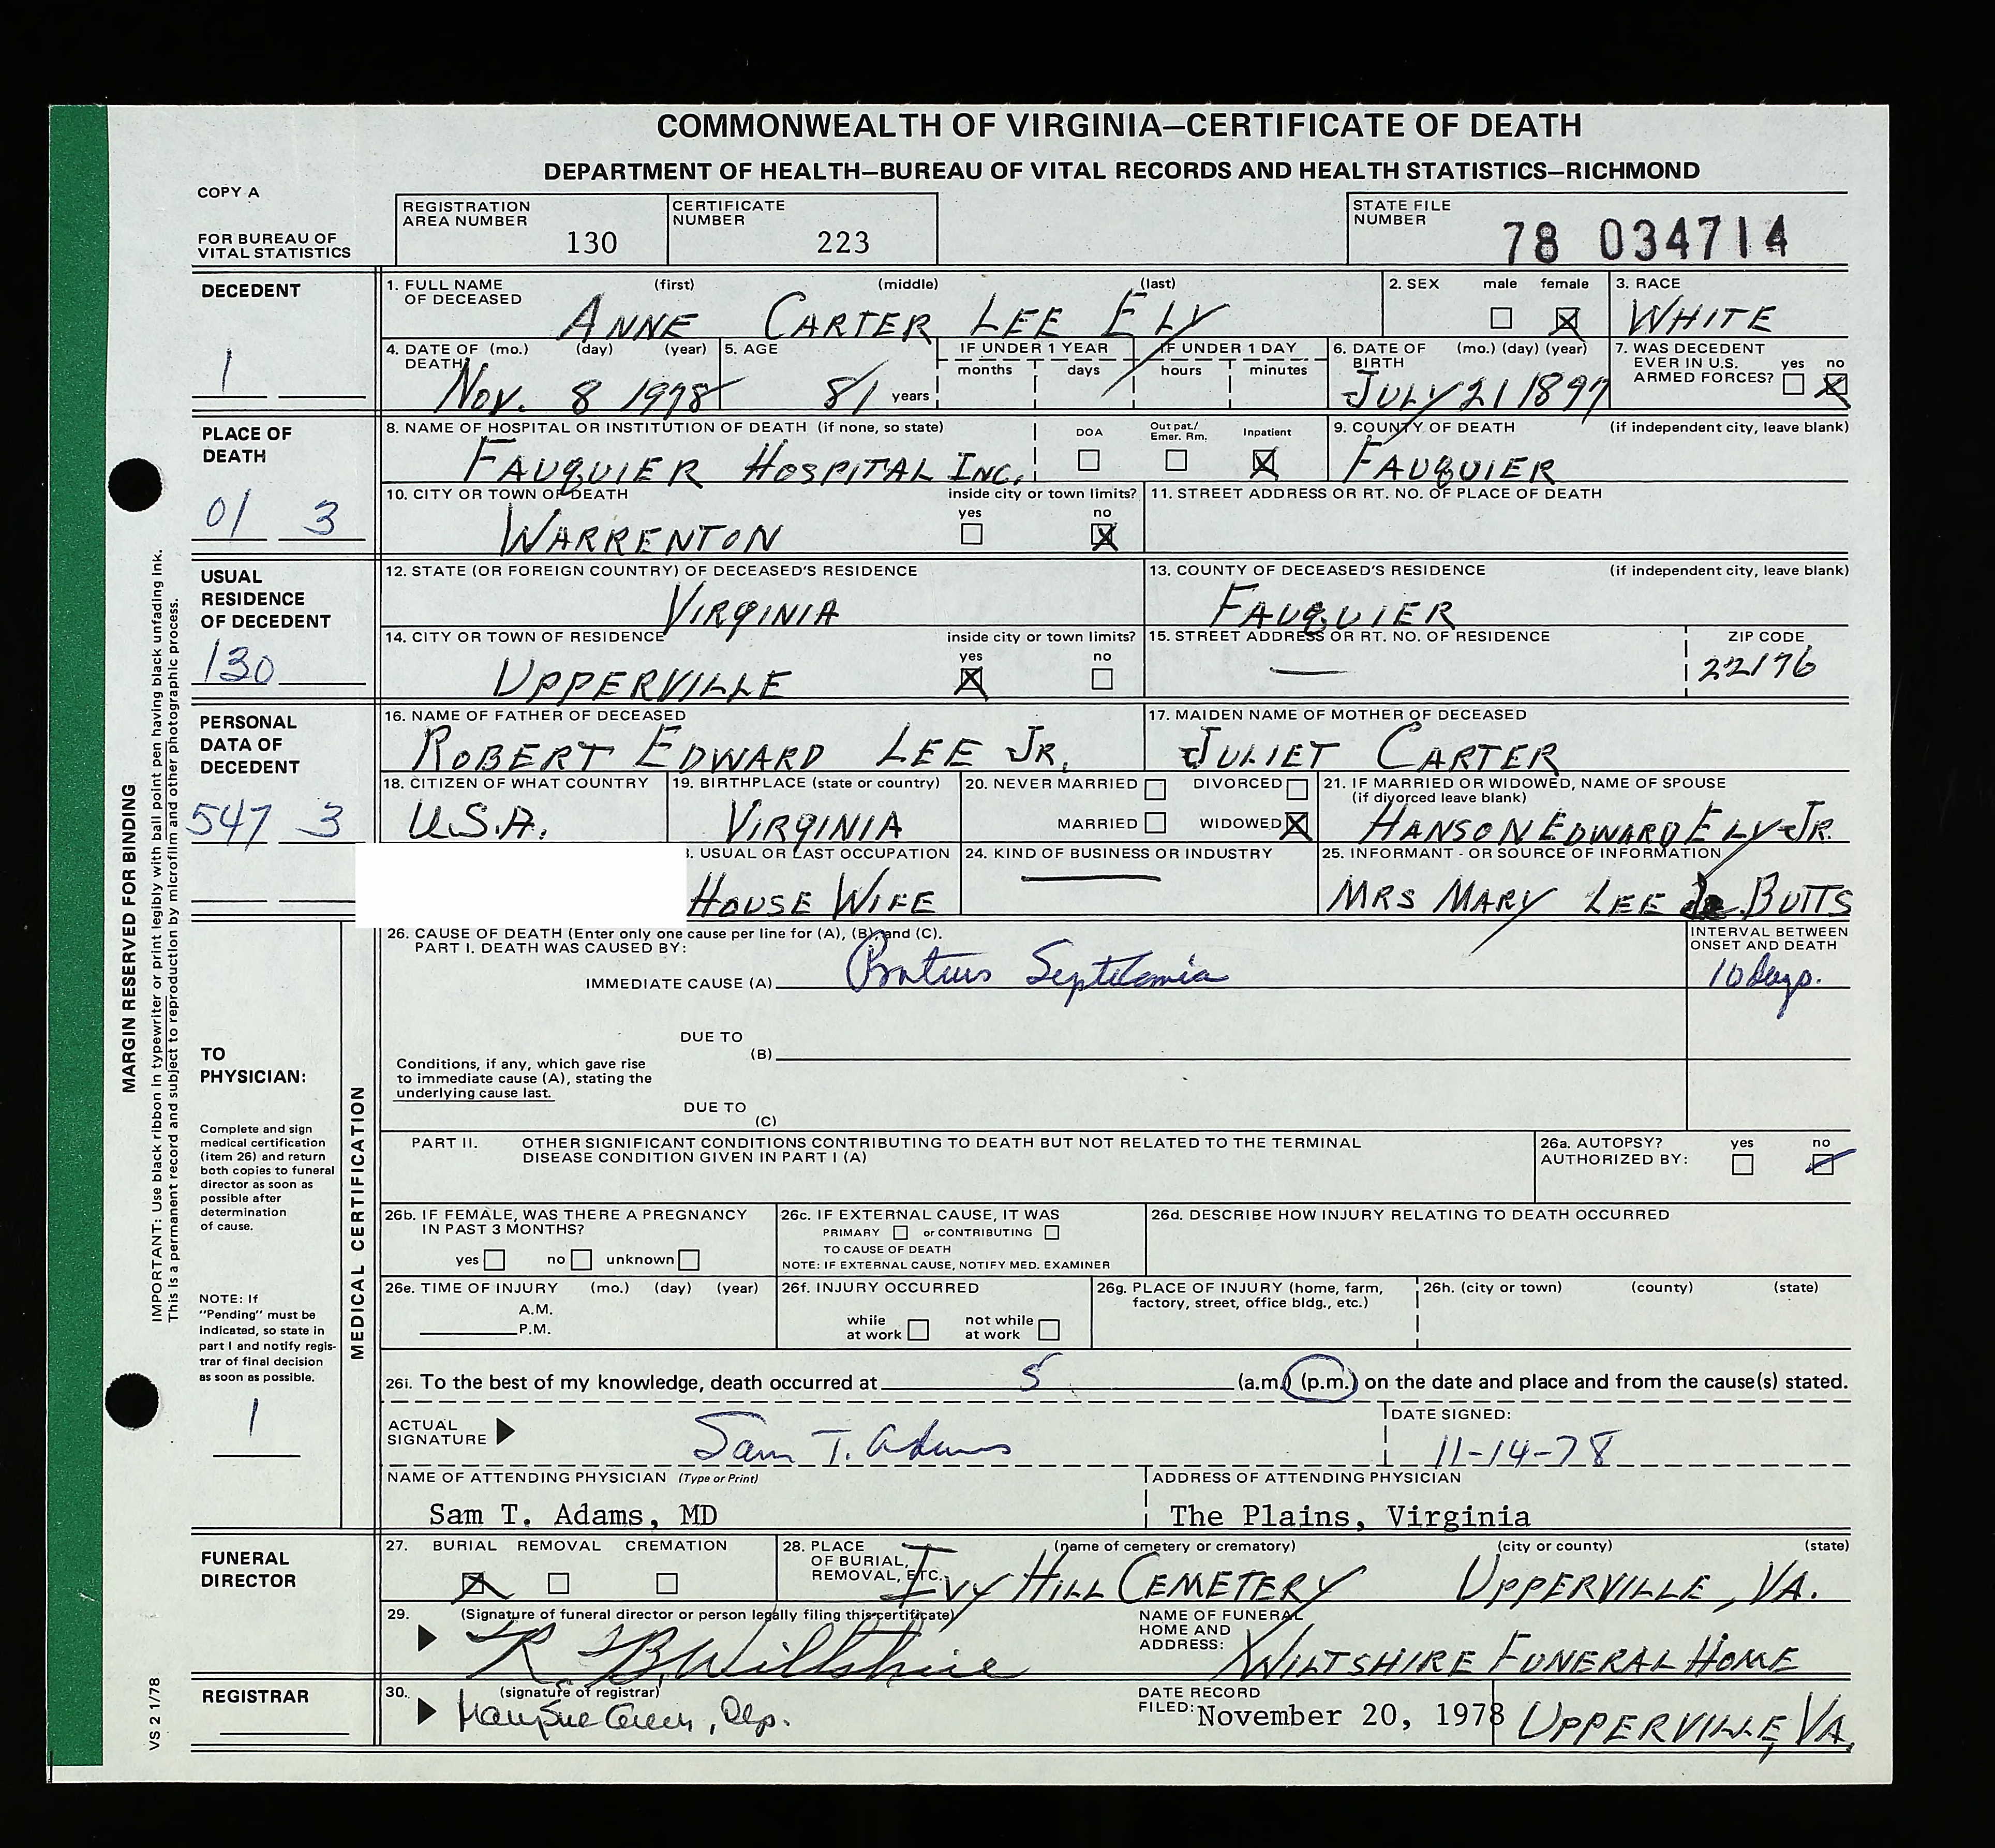 COMMONWEALTH OF VIRGINIA—CERTIFICATE OF DEATH
DEPARTMENT OF HEALTH—BUREAU OF VITAL RECORDS AND HEALTH STATISTICS—RICHMOND
COPY A
FOR BUREAU OF
VITAL STATISTICS
REGISTRATION
AREA NUMBER 130
CERTIFICATE
NUMBER 223
STATE FILE
NUMBER 78 034714
DECEDENT
1
1. FULL NAME OF DECEASED (first) (middle) (last)
ANNE CARTER LEE ELY
2. SEX male female
3. RACE
WHITE
4. DATE OF DEATH (mo.) (day) (year)
Nov. 8 1978
5. AGE
81 years
IF UNDER 1 YEAR
months days
IF UNDER 1 DAY
hours minutes
6. DATE OF BIRTH (mo.) (day) (year)
JULY 21 1897
7. WAS DECEDENT EVER IN U.S. ARMED FORCES? yes no
PLACE OF
DEATH
01 3
8. NAME OF HOSPITAL OR INSTITUTION OF DEATH (if none, so state)
FAUQUIER HOSPITAL INC.
DOA Out pat./ Emer. Rm. Inpatient
9. COUNTY OF DEATH (if independent city, leave blank)
FAUQUIER
10. CITY OR TOWN OF DEATH inside city or town limits?
yes no
WARRENTON
11. STREET ADDRESS OR RT. NO. OF PLACE OF DEATH
USUAL
RESIDENCE
OF DECEDENT
130
12. STATE (OR FOREIGN COUNTRY) OF DECEASED'S RESIDENCE
VIRGINIA
13. COUNTY OF DECEASED'S RESIDENCE (if independent city, leave blank)
FAUQUIER
14. CITY OR TOWN OF RESIDENCE inside city or town limits?
yes no
UPPERVILLE
15. STREET ADDRESS OR RT. NO. OF RESIDENCE
—
ZIP CODE
22176
PERSONAL
DATA OF
DECEDENT
547 3
16. NAME OF FATHER OF DECEASED
ROBERT EDWARD LEE JR.
17. MAIDEN NAME OF MOTHER OF DECEASED
JULIET CARTER
18. CITIZEN OF WHAT COUNTRY
U.S.A.
19. BIRTHPLACE (state or country)
VIRGINIA
20. NEVER MARRIED DIVORCED
MARRIED WIDOWED
21. IF MARRIED OR WIDOWED, NAME OF SPOUSE
(if divorced leave blank)
HANSON EDWARD ELY JR.
3. USUAL OR LAST OCCUPATION
HOUSE WIFE
24. KIND OF BUSINESS OR INDUSTRY
—
25. INFORMANT - OR SOURCE OF INFORMATION
MRS MARY LEE de BUTTS
MARGIN RESERVED FOR BINDING
IMPORTANT: Use black ribbon in typewriter or print legibly with ball point pen having black unfading ink.
This is a permanent record and subject to reproduction by microfilm and other photographic process.
TO
PHYSICIAN:
Complete and sign
medical certification
(item 26) and return
both copies to funeral
director as soon as
possible after
determination
of cause.
NOTE: If
"Pending" must be
indicated, so state in
part I and notify regis-
trar of final decision
as soon as possible.
1
MEDICAL CERTIFICATION
26. CAUSE OF DEATH (Enter only one cause per line for (A), (B) and (C).
PART I. DEATH WAS CAUSED BY:
INTERVAL BETWEEN
ONSET AND DEATH
IMMEDIATE CAUSE (A) 10 days.
DUE TO
(B)
Conditions, if any, which gave rise
to immediate cause (A), stating the
underlying cause last.
DUE TO
(C)
PART II. OTHER SIGNIFICANT CONDITIONS CONTRIBUTING TO DEATH BUT NOT RELATED TO THE TERMINAL
DISEASE CONDITION GIVEN IN PART I (A)
26a. AUTOPSY? yes no
AUTHORIZED BY:
26b. IF FEMALE, WAS THERE A PREGNANCY
IN PAST 3 MONTHS?
yes no unknown
26c. IF EXTERNAL CAUSE, IT WAS
PRIMARY or CONTRIBUTING
TO CAUSE OF DEATH
NOTE: IF EXTERNAL CAUSE, NOTIFY MED. EXAMINER
26d. DESCRIBE HOW INJURY RELATING TO DEATH OCCURRED
26e. TIME OF INJURY (mo.) (day) (year)
A.M.
P.M.
26f. INJURY OCCURRED
while at work not while at work
26g. PLACE OF INJURY (home, farm,
factory, street, office bldg., etc.)
26h. (city or town) (county) (state)
26i. To the best of my knowledge, death occurred at 5 (a.m.) (p.m.) on the date and place and from the cause(s) stated.
ACTUAL
SIGNATURE Sam T. Adams
DATE SIGNED:
11-14-78
NAME OF ATTENDING PHYSICIAN (Type or Print)
Sam T. Adams, MD
ADDRESS OF ATTENDING PHYSICIAN
The Plains, Virginia
FUNERAL
DIRECTOR
27. BURIAL REMOVAL CREMATION
28. PLACE OF BURIAL, REMOVAL, ETC. (name of cemetery or crematory) (city or county) (state)
IVY HILL CEMETERY UPPERVILLE, VA.
29. (Signature of funeral director or person legally filing this certificate)
Wiltshire
NAME OF FUNERAL
HOME AND
ADDRESS: WILTSHIRE FUNERAL HOME
REGISTRAR
30. (signature of registrar)
DATE RECORD
FILED: November 20, 1978
UPPERVILLE, VA.
VS 2 1/78